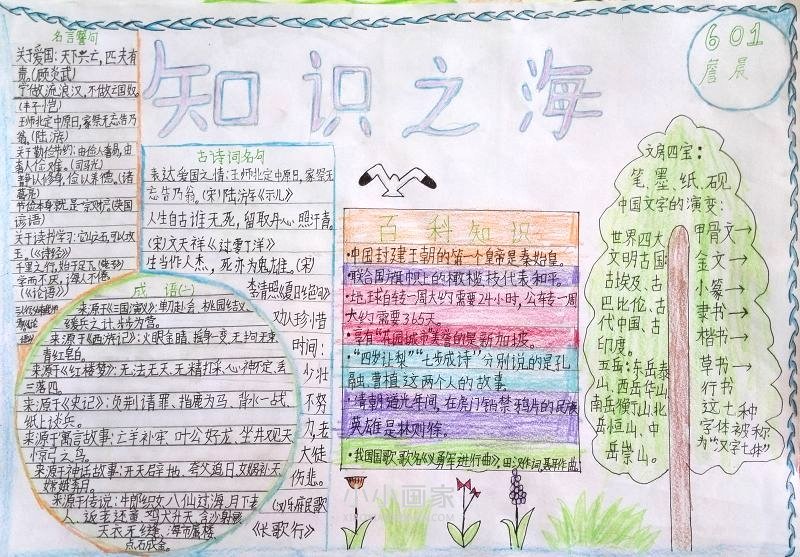 知识之海
601
詹晨
名言警句
关于爱国:天下兴亡,匹夫有
责。(顾炎武)
宁做流浪汉,不做亡国奴。
(丰子恺)
王师北定中原日,家祭无忘告乃
翁。(陆游)
关于勤俭节约:由俭入奢易,由
奢入俭难。(司马光)
静以修身,俭以养德。(诸
葛亮)
节俭本身就是
谚语)
关于读书学习:它山之石,可以攻
玉。(《诗经》)
千里之行,始于足下。
学而不厌,诲人不倦。
(《论语》)
古诗词名句
表达爱国之情:王师北定中原日,家祭无
忘告乃翁。(宋)陆游《示儿》
人生自古谁无死,留取丹心照汗青。
(宋)文天祥《过零丁洋》
生当作人杰,死亦为鬼雄。(宋)
李清照《夏日绝句》
劝人珍惜
时间:
少壮
不努
力,老
大徒
伤悲。
(汉)乐府民歌
《长歌行》
成语(二)
来源于《三国演义》:单刀赴会、桃园结义、
缓兵之计、步步为营。
来源于《西游记》:火眼金睛、摇身一变、无拘无束、
青红皂白。
来源于《红楼梦》:无法无天、无精打采、心神不定、丢
三落四。
来源于《史记》:负荆请罪、指鹿为马、背水一战、
纸上谈兵。
来源于寓言故事:亡羊补牢、叶公好龙、坐井观天、
惊弓之鸟。
来源于神话故事:开天辟地、夸父追日、女娲补天、
嫦娥奔月。
来源于传说:牛郎织女、八仙过海、月下老
人、返老还童、鸡犬升天、含沙射影、
天衣无缝、海市蜃楼、
点石成金。
百科知识
·中国封建王朝的第一个皇帝是秦始皇。
·联合国旗帜上的橄榄枝代表和平。
·地球自转一周大约需要24小时,公转一周
大约需要365天。
·享有“花园城市”美誉的是新加坡。
·“四岁让梨”“七步成诗”分别说的是孔
融、曹植这两个人的故事。
·清朝道光年间,在虎门销禁鸦片的民族
英雄是林则徐。
·我国国歌歌名《义勇军进行曲》,田汉作词,聂耳作曲。
文房四宝:
笔、墨、纸、砚
中国文字的演变:
甲骨文→
金文→
小篆→
隶书→
楷书→
草书→
行书
这七种
字体被称
为“汉字七体”
世界四大
文明古国:
古埃及、古
巴比伦、古
代中国、古
印度。
五岳:东岳泰
山、西岳华山、
南岳衡山、北
岳恒山、中
岳嵩山。
小小画家